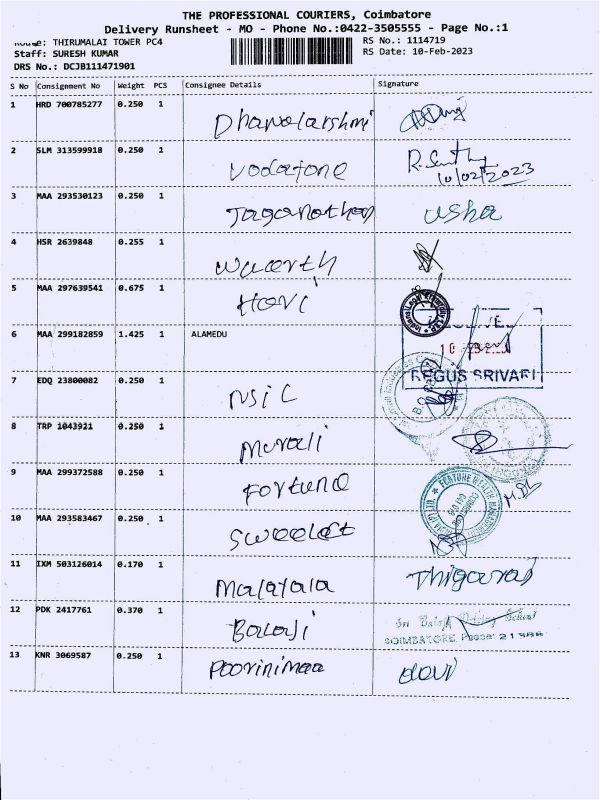 THE PROFESSIONAL COURIERS, Coimbatore
Delivery Runsheet - MO - Phone No.:0422-3505555 - Page No.:1
THIRUMALAI TOWER PC4 RS No.: 1114719
Staff: SURESH KUMAR RS Date: 10-Feb-2023
DRS No.: DCJB111471901
S No Consignment No Weight PCS Consignee Details Signature
1 HRD 700785277 0.250 1
2 SLM 313599918 0.250 1 Vodafone
10/02/2023
3 MAA 293530123 0.250 1 Jaganathan Usha
4 HSR 2639848 0.255 1
5 MAA 297639541 0.675 1 Hari
6 MAA 299182859 1.425 1 ALAMEDU
REGUS SRIVARI
7 EDQ 23800082 0.250 1 NSIC
8 TRP 1043921 0.250 1 Murali
9 MAA 299372588 0.250 1 Fortune
10 MAA 293583467 0.250 1
11 IXM 503126014 0.170 1 Malayala Thigaraj
12 PDK 2417761 0.370 1 Balaji
COIMBATORE. Phone:
13 KNR 3069587 0.250 1 Poorinimaa